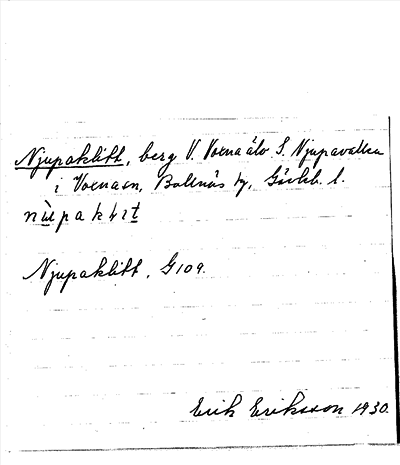 Njupaklitt, berg V. Voxnaälv S. Njupavallen
i Voxnaen, Bollnäs tg, Gävleb. l.
nùpaklıt
Njupaklitt, G109.
Erik Eriksson 1930.